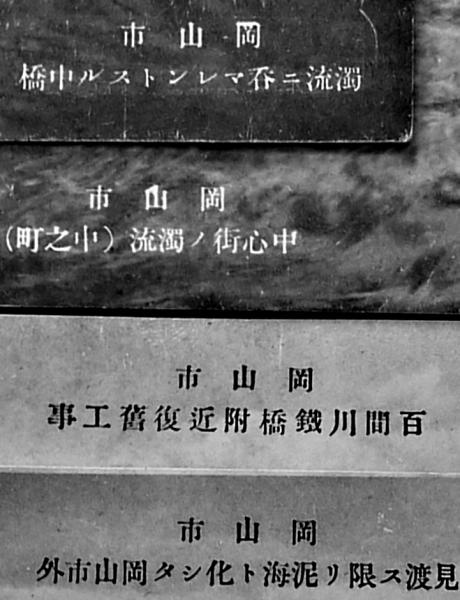 岡山市
濁流ニ呑マレントスル中橋
岡山市
中心街ノ濁流(中之町)
岡山市
百間川鐵橋附近復舊工事
岡山市
見渡ス限リ泥海ト化シタ岡山市外